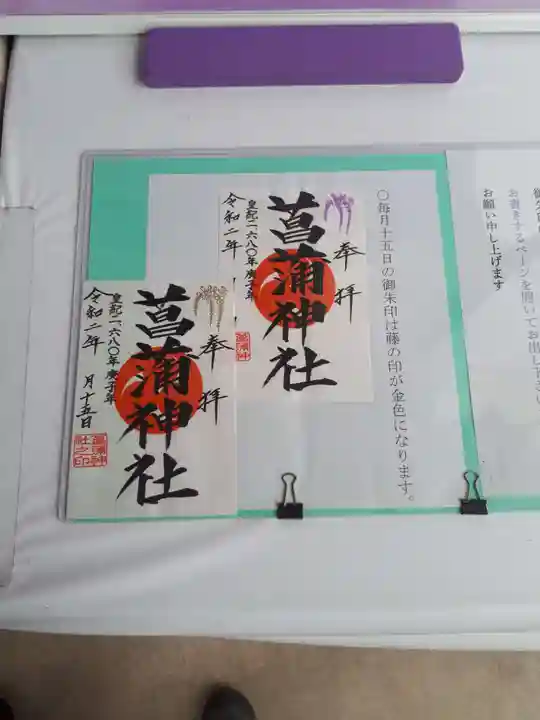 御朱印
お書きするページを開いてお出し下さい
お願い申し上げます
〇毎月十五日の御朱印は藤の印が金色になります。
奉拝
菖蒲神社
皇紀二、六八〇年庚子年
令和二年
奉拝
菖蒲神社
皇紀二、六八〇年庚子年
令和二年 月十五日
菖蒲神社之印